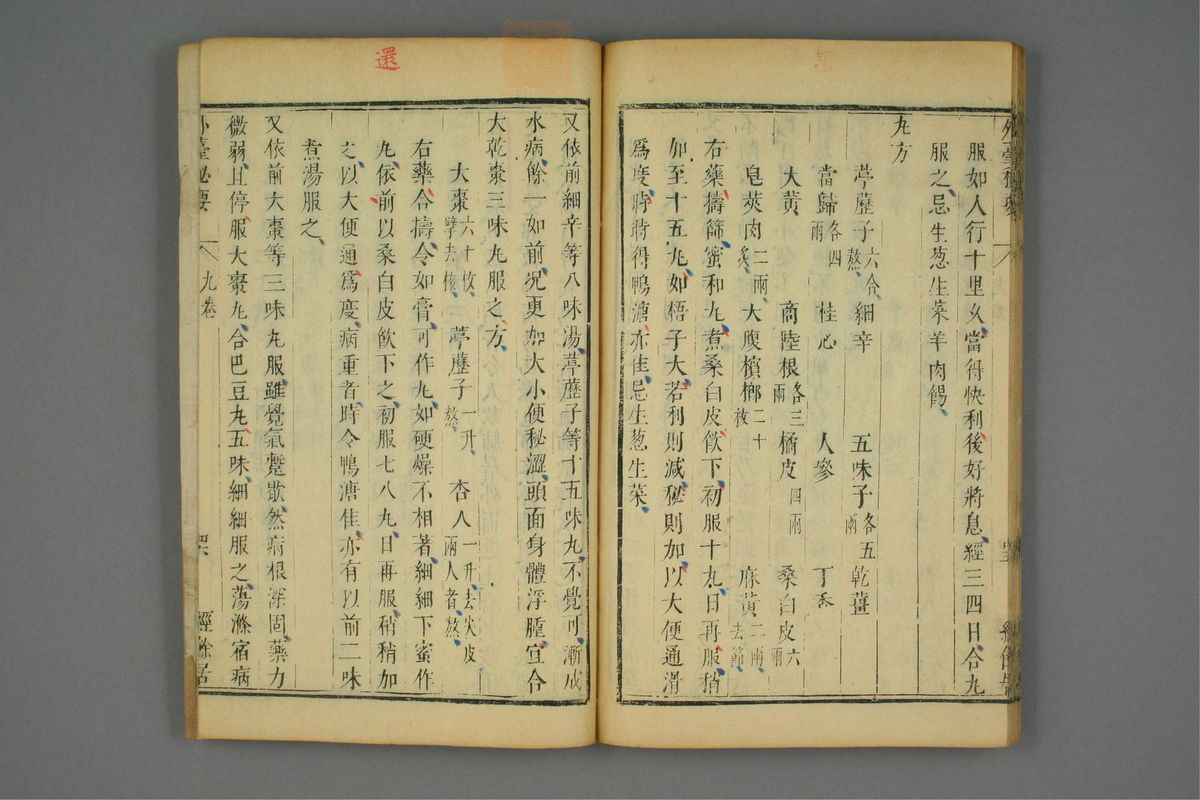 服如人行十里乆當得快利後好將息經三四日合九
服之忌生葱生菜羊肉餳
九方
葶藶子六合熬 細辛 五味子各五兩 乾薑
當歸各四兩 桂心 人參 丁香
大黃 商陸根各三兩 橘皮四兩 桑白皮六兩
皂莢肉二兩炙 大腹檳榔二十枚 麻黃二兩去節
右藥擣篩蜜和九煮桑白皮飲下初服十九日再服稍
加至十五九如梧子大若利則減秘則加以大便通滑
爲度時時得鴨溏亦佳忌生葱生菜
外臺秘要 九卷 經餘居
還
又依前細辛等八味湯葶藶子等十五味九不覺可漸成
水病餘一如前况更加大小便秘澀頭面身體浮腫宜合
大乾棗三味九服之方
大棗六十枚擘去核 葶藶子一升熬 杏人一升去尖皮兩人者熬
右藥合擣令如膏可作九如硬燥不相著細細下蜜作
九依前以桑白皮飲下之初服七八九日再服稍稍加
之以大便通爲度病重者時令鴨溏佳亦有以前二味
煮湯服之
又依前大棗等三味九服雖覺氣蹔歇然病根深固藥力
微弱且停服大棗九合巴豆九五味細細服之蕩滌宿病
外臺秘要 九卷 經餘居